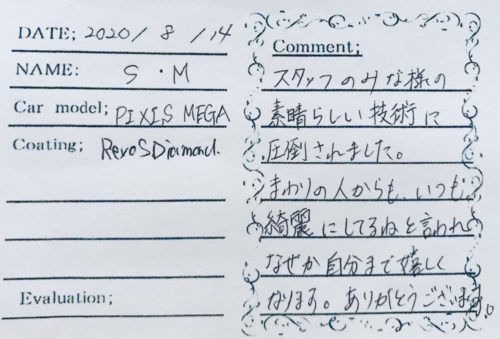 DATE; 2020 / 8 / 14
NAME: S・M
Car model; PIXIS MEGA
Coating; RevoSDiamond.
Evaluation;
Comment;
スタッフのみな様の
素晴らしい技術に
圧倒されました。
まわりの人からも、いつも
綺麗にしてるねと言われ
なぜか自分まで嬉しく
なります。ありがとうございます。